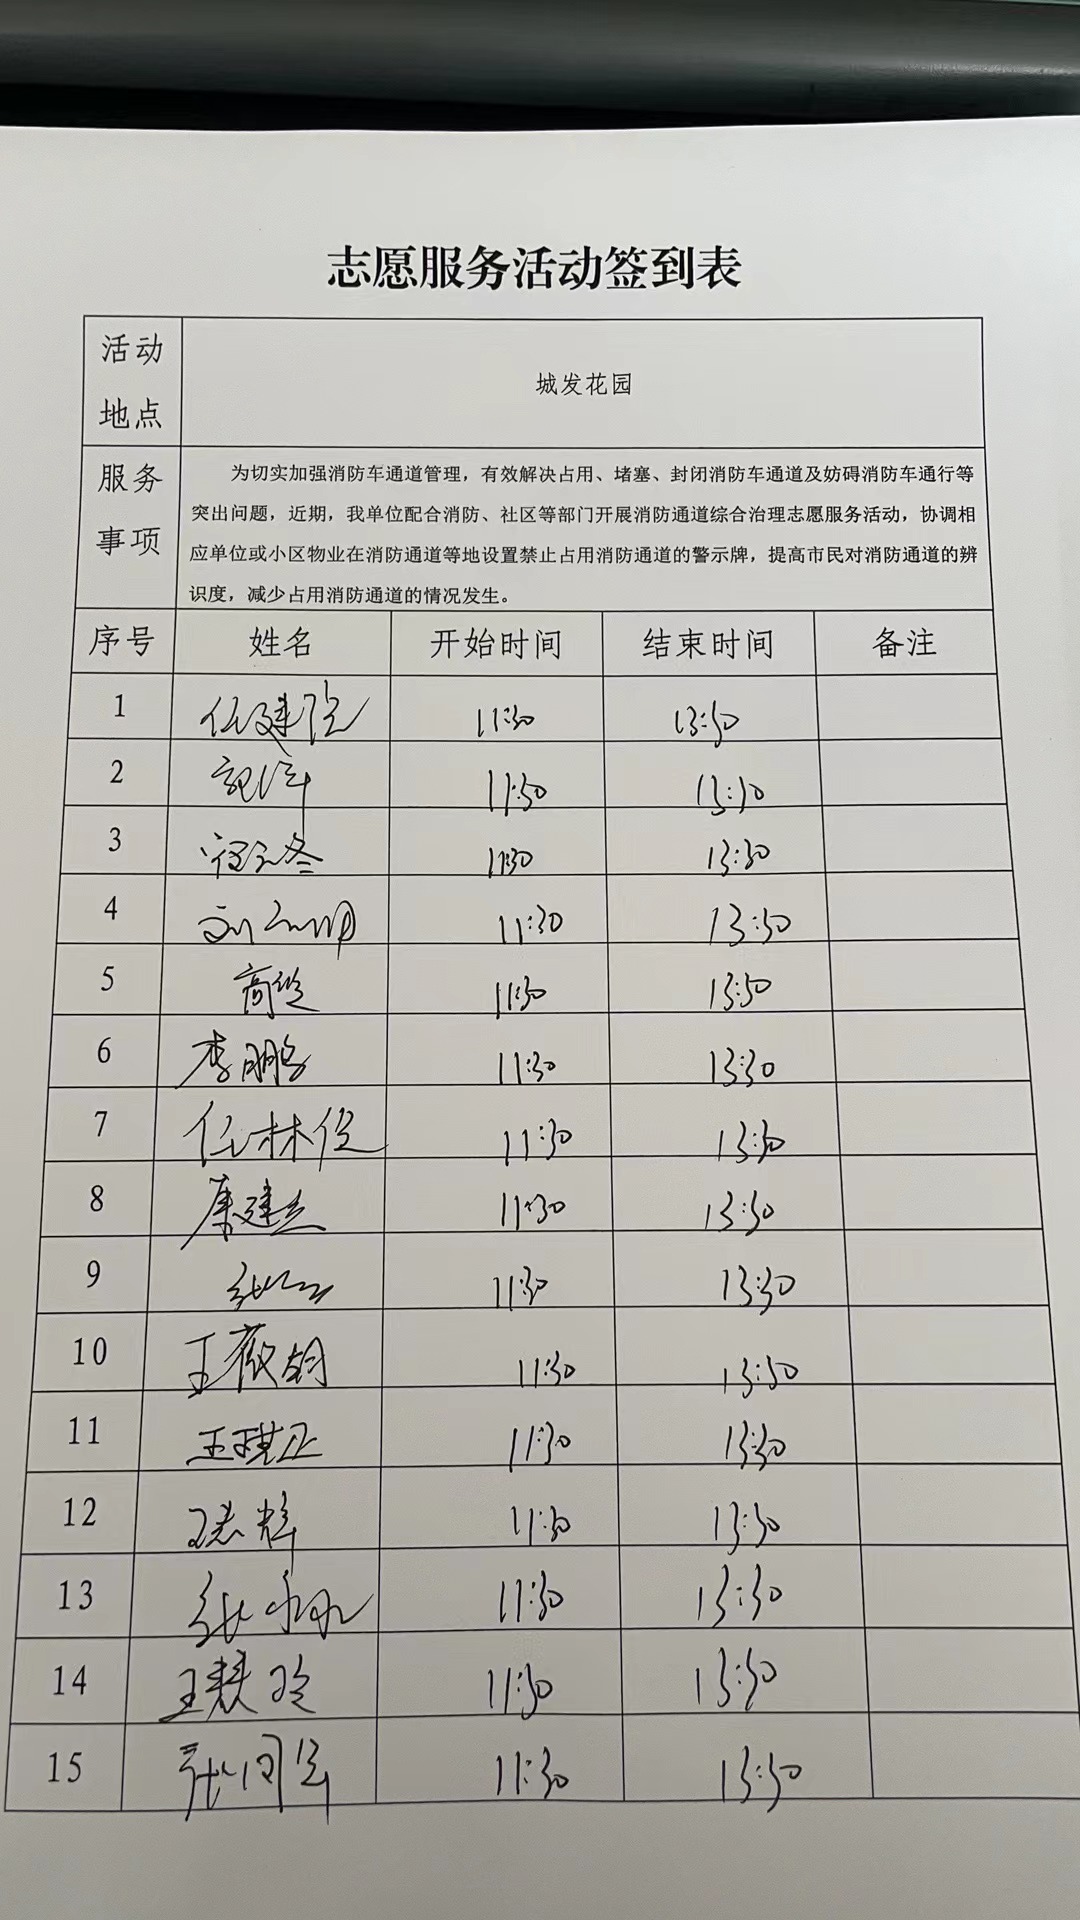 志愿服务活动签到表
活动地点 城发花园
服务事项
为切实加强消防车通道管理，有效解决占用、堵塞、封闭消防车通道及妨碍消防车通行等
突出问题，近期，我单位配合消防、社区等部门开展消防通道综合治理志愿服务活动，协调相
应单位或小区物业在消防通道等地设置禁止占用消防通道的警示牌，提高市民对消防通道的辨
识度，减少占用消防通道的情况发生。
序号 姓名 开始时间 结束时间 备注
1 11:30 13:30
2 11:30 13:30
3 11:30 13:30
4 11:30 13:30
5 11:30 13:30
6 李鹏 11:30 13:30
7 任林 11:30 13:30
8 康建 11:30 13:30
9 张 11:30 13:30
10 王薇 11:30 13:30
11 王琪 11:30 13:30
12 11:30 13:30
13 张 11:30 13:30
14 王慧玲 11:30 13:30
15 张同 11:30 13:30